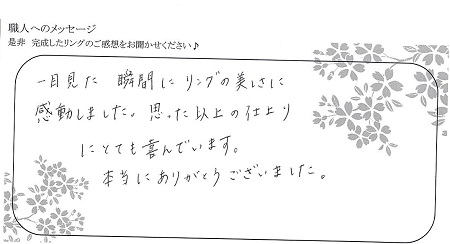 職人へのメッセージ
是非 完成したリングのご感想をお聞かせください♪
一目見た 瞬間に リングの美しさに
感動しました。思った以上の仕上り
にとても喜んでいます。
本当にありがとうございました。